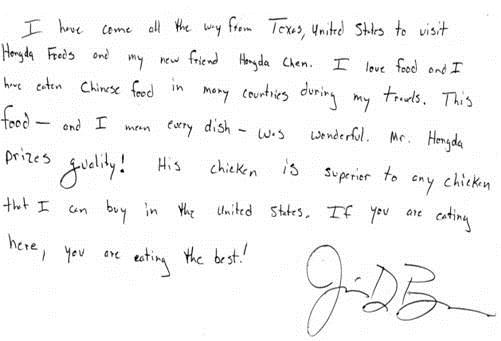 I have come all the way from Texas, United States to visit
Hengda Foods and my new friend Hengda Chen. I love food and I
have eaten Chinese food in many countries during my travels. This
food – and I mean every dish – was wonderful. Mr. Hengda
prizes quality! His chicken is superior to any chicken
that I can buy in the United States. If you are eating
here, you are eating the best!